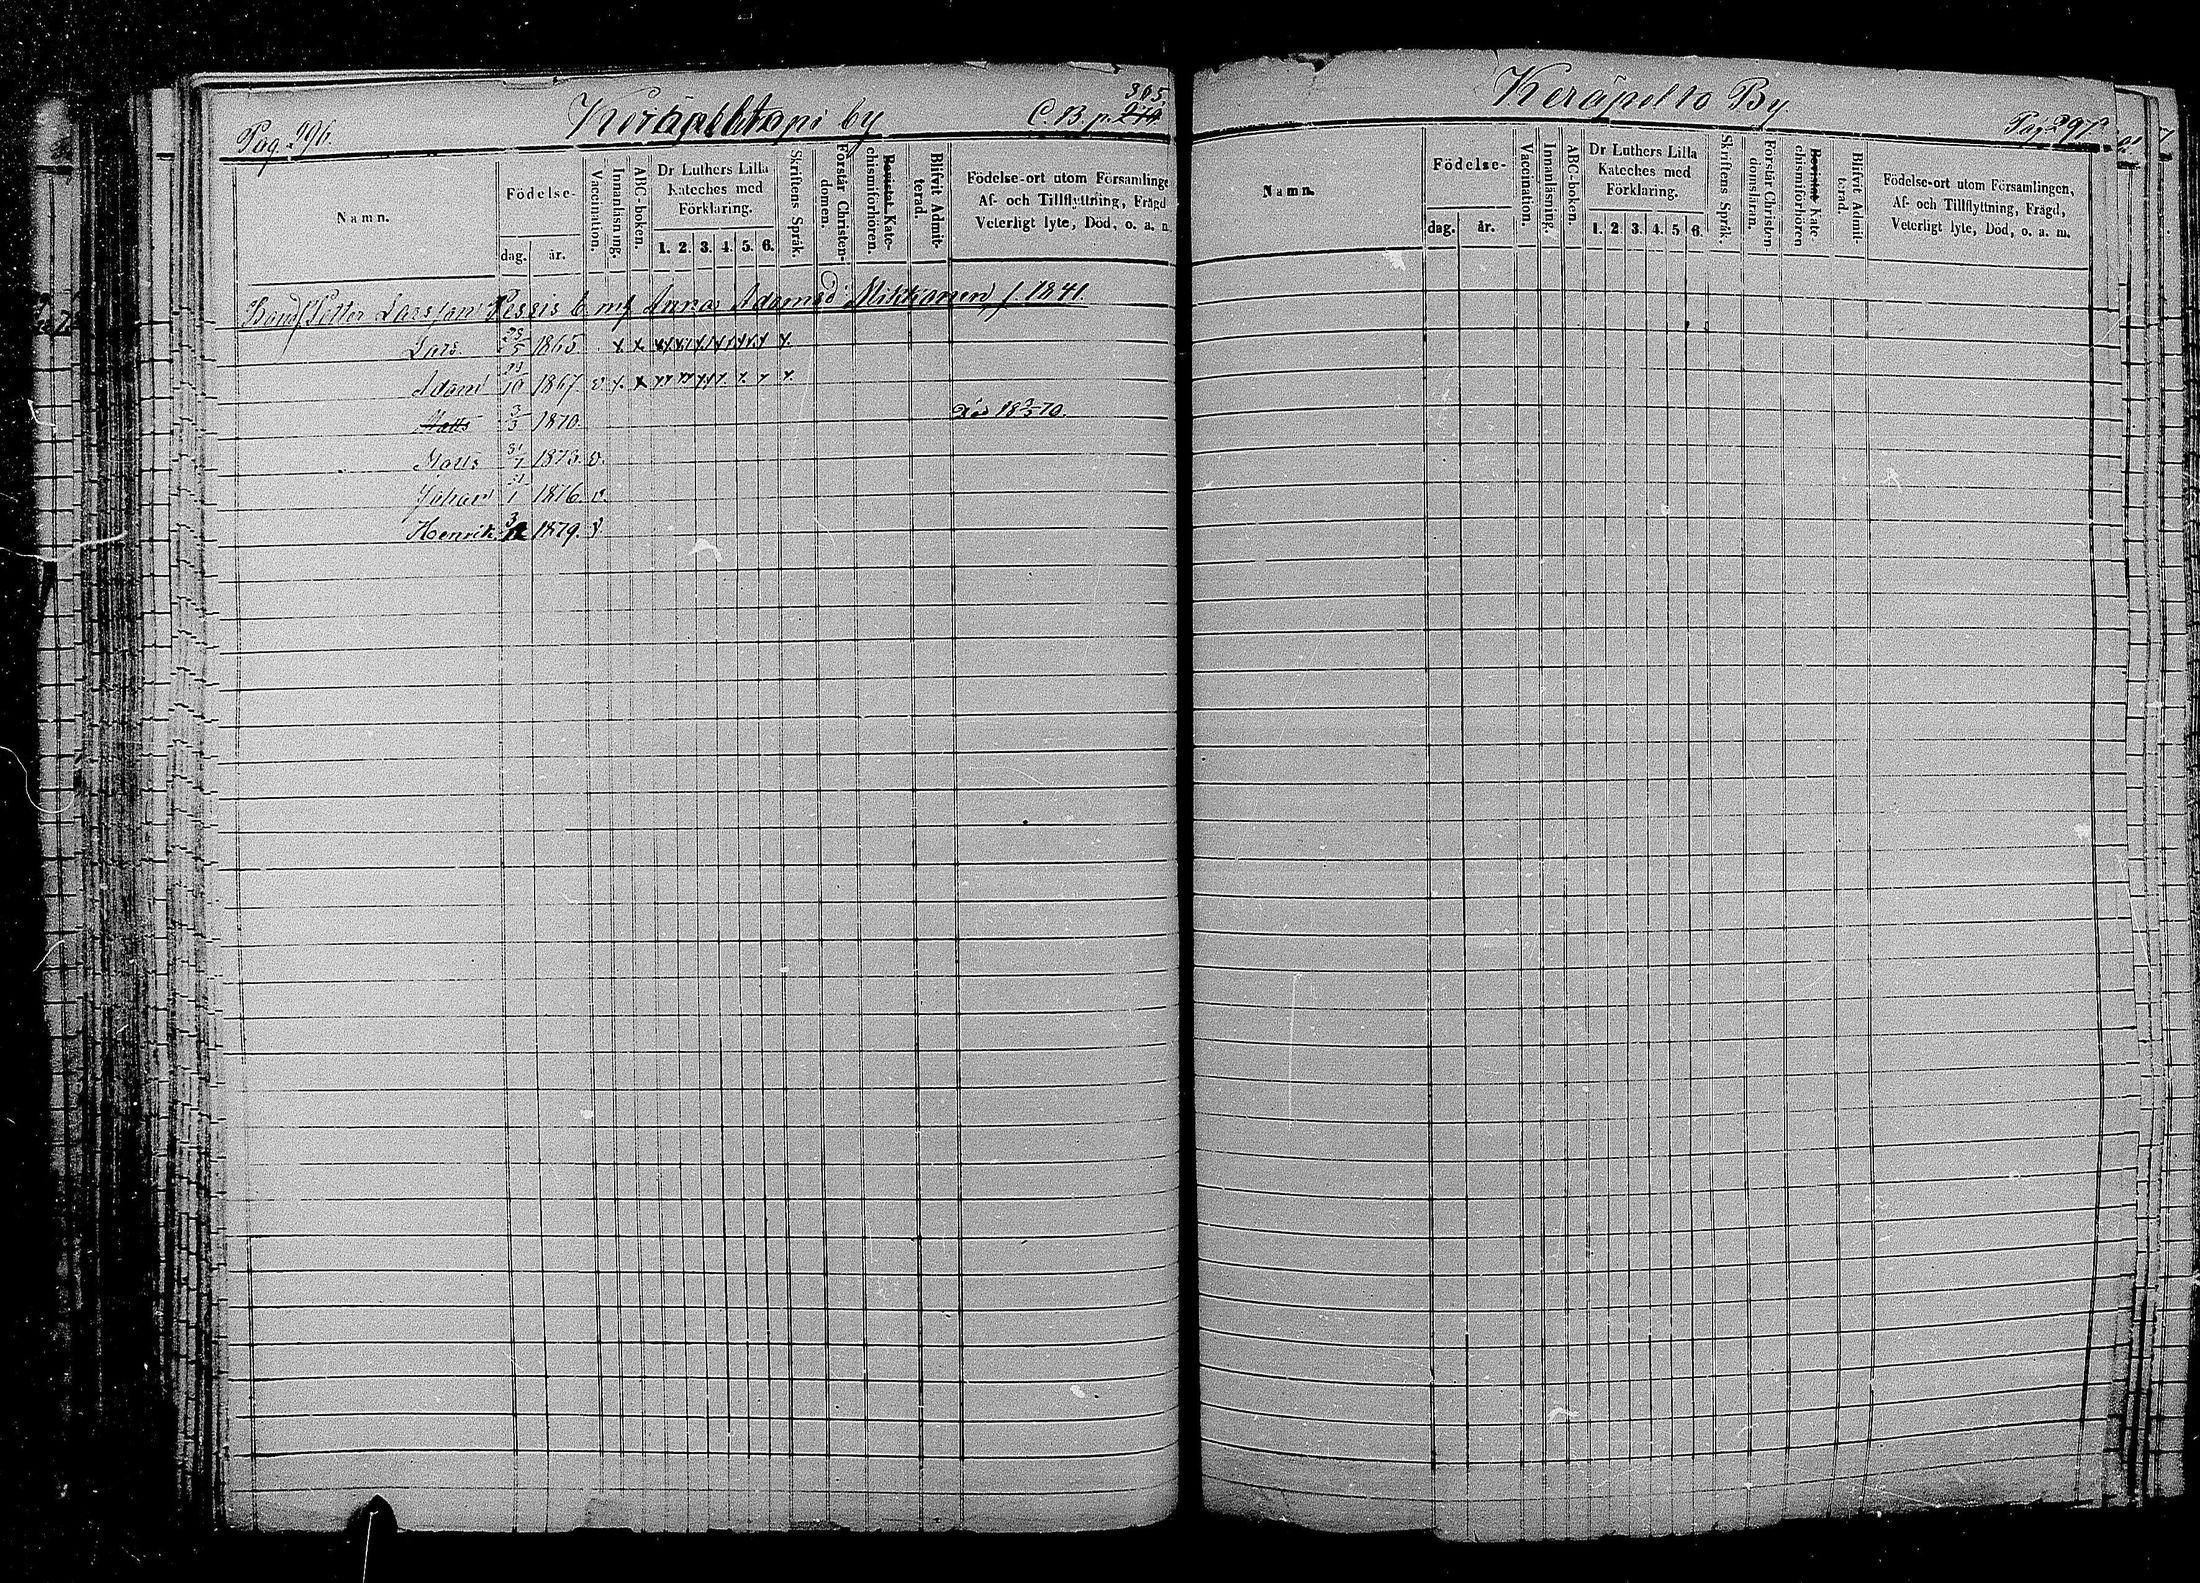 Pag. 296. by C. B. p. 274
305
Namn. Födelse- dag. år. Vaccination. Innanläsning. ABC-boken. Dr Luthers Lilla Kateches med Förklaring. 1. 2. 3. 4. 5. 6. Skriftens Språk. Förstår Christendomen. Bevistat Katechismiförhören. Blifvit Admitterad. Födelse-ort utom Församlinge Af- och Tillflyttning, Frägd Veterligt lyte, Död, o. a. n.
Petter Larsson Pessi &c m/ Anna Adamsd Mikkonen f. 1841.
Lars 23/5 1865. x x x x x x x x x
Adam 1867. v x x x x x x x x x
Matts 3/3 1870. Död 70.
Matts 31/7 1873. v.
Johan 31/1 1876. v.
Henrik 1879. v
Keräpelto By. Pag 297
Namn. Födelse- dag. år. Vaccination. Innanläsning. ABC-boken. Dr Luthers Lilla Kateches med Förklaring. 1. 2. 3. 4. 5 6. Skriftens Språk. Förstår Christendomsläran. Bevistat Katechismiförhören Blifvit Admitterad. Födelse-ort utom Församlingen, Af- och Tillflyttning, Frägd, Veterligt lyte, Död, o. a. m.